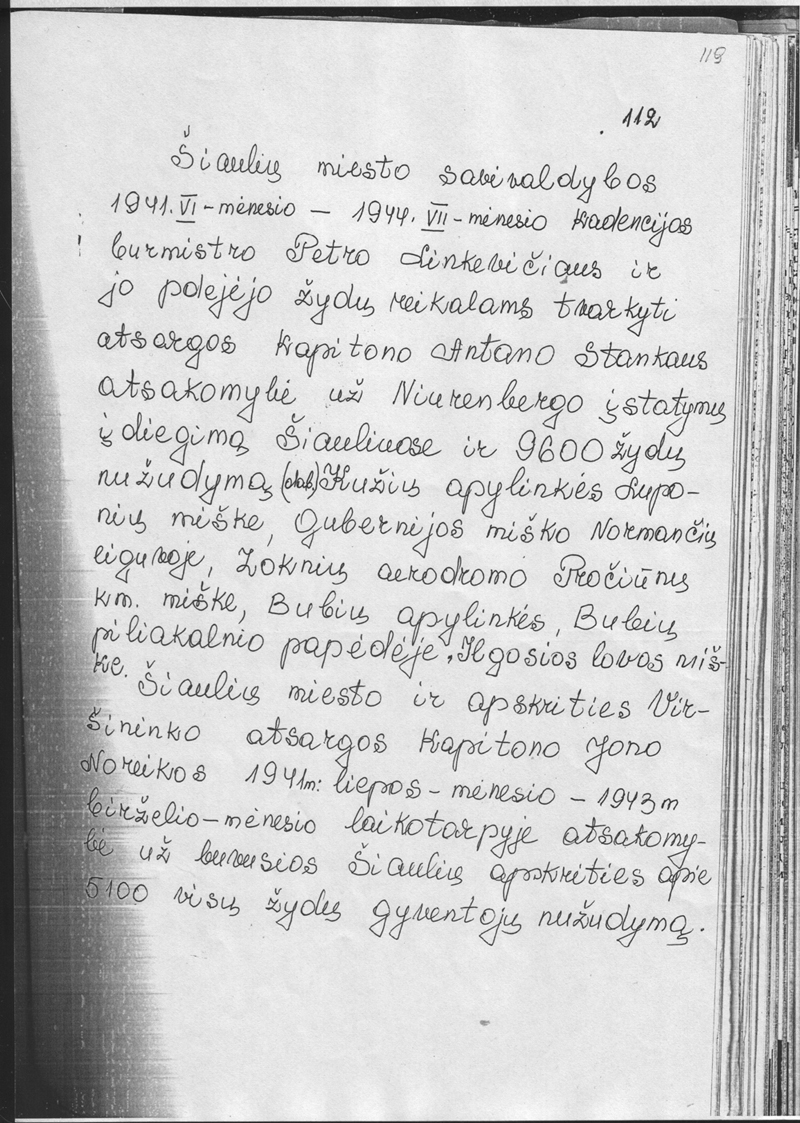 119
112
Šiaulių miesto savivaldybos
1941.VI-mėnesio — 1944.VII-mėnesio kadencijos
burmistro Petro Linkevičiaus ir
jo pdejėjo žydų reikalams tvarkyti
atsargos kapitono Antano Stankaus
atsakomybė už Niurenbergo įstatymų
įdiegimą Šiauliuose ir 9600 žydų
nužudymą Kužių apylinkės Lupo-
nių miške, Gubernijos miško Normančių
eiguvoje, Zoknių aerodromo Pročiūnų
km. miške, Bubių apylinkės, Bubių
piliakalnio papėdėje, Ilgosios lovos miš-
ke.
Šiaulių miesto ir apskrities Vir-
šininko atsargos kapitono Jono
Noreikos 1941m: liepos-mėnesio — 1943m
birželio-mėnesio laikotarpyje atsakomy-
bė už buvusios Šiaulių apskrities apie
5100 visų žydų gyventojų nužudymą.